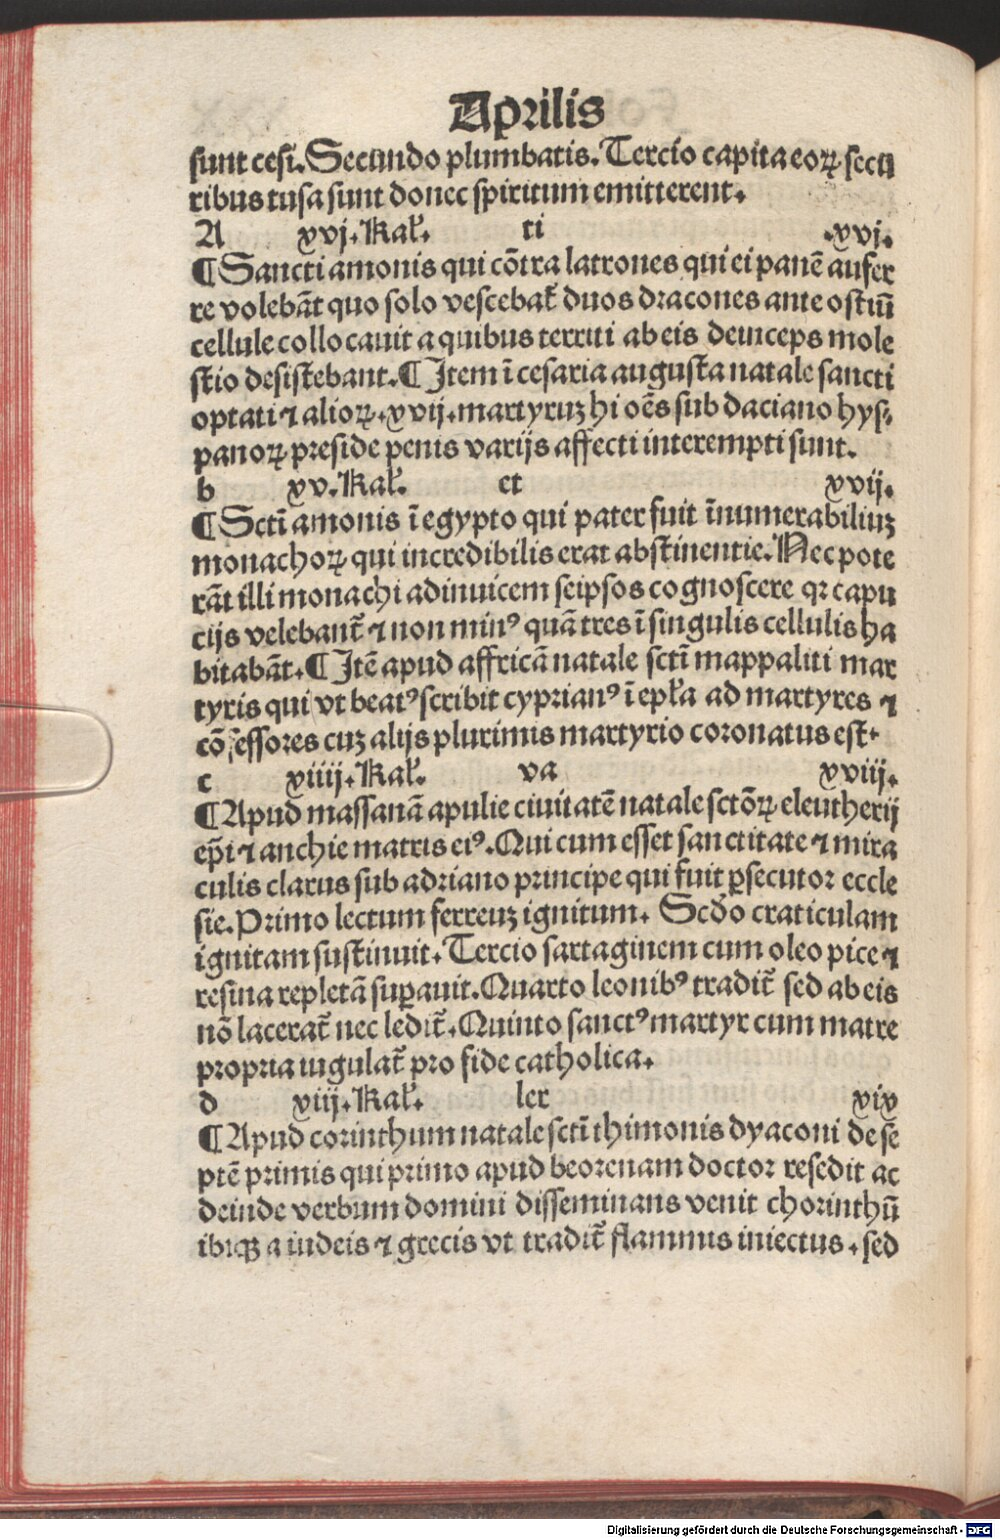 Aprilis
sunt cesi. Secundo plumbatis. Tercio capita eoꝝ secu
ribus tusa sunt donec spiritum emitterent.
A xvj. Kal̓. ti .xvj.
¶ Sancti amonis qui cōtra latrones qui ei panē aufer
re volebāt quo solo vescebat̄ duos dracones ante ostiū
cellule collocauit a quibus territi ab eis deinceps mole
stio desistebant. ¶ Item ī cesaria augusta natale sancti
optati ⁊ alioꝝ. xvij. martyruꝫ hi oēs sub daciano hys⸗
panoꝝ preside penis varijs affecti interempti sunt.
b xv. Kal̓. et xvij.
¶ Sctī amonis ī egypto qui pater fuit īnumerabiliuꝫ
monachoꝝ qui incredibilis erat abstinentie. Nec pote
rāt illi monachi adinuicem seipsos cognoscere qꝛ capu
cijs velebant̄ ⁊ non minꝰ quā tres ī singulis cellulis ha
bitabāt. ¶ Itē apud affricā natale sctī mappaliti mar
tyris qui vt beatꝰ scribit cyprianꝰ ī epl̓a ad martyres ⁊
cōfessores cuꝫ alijs plurimis martyrio coronatus est.
c xiiij. Kal̓. va xviij.
¶ Apud massanā apulie ciuitatē natale sctōꝝ eleutherij
ep̄i ⁊ anchie matris eiꝰ. Qui cum esset sanctitate ⁊ mira
culis clarus sub adriano principe qui fuit ꝑsecutor eccle
sie. Primo lectum ferreuꝫ ignitum. Scdo craticulam
ignitam sustinuit. Tercio sartaginem cum oleo pice ⁊
resina repletā suꝑauit. Quarto leonibꝰ tradit̄ sed ab eis
nō lacerat̄ nec ledit̄. Quinto sanctꝰ martyr cum matre
propria iugulat̄ pro fide catholica.
d xiij. Kal̓. ler xix
¶ Apud corinthum natale sctī thimonis dyaconi de se
ptē primis qui primo apud beorenam doctor resedit ac
deinde verbum domini disseminans venit chorinthū
ibiqꝫ a iudeis ⁊ grecis vt tradit̄ flammis iniectus. sed
Digitalisierung gefördert durch die Deutsche Forschungsgemeinschaft - DFG